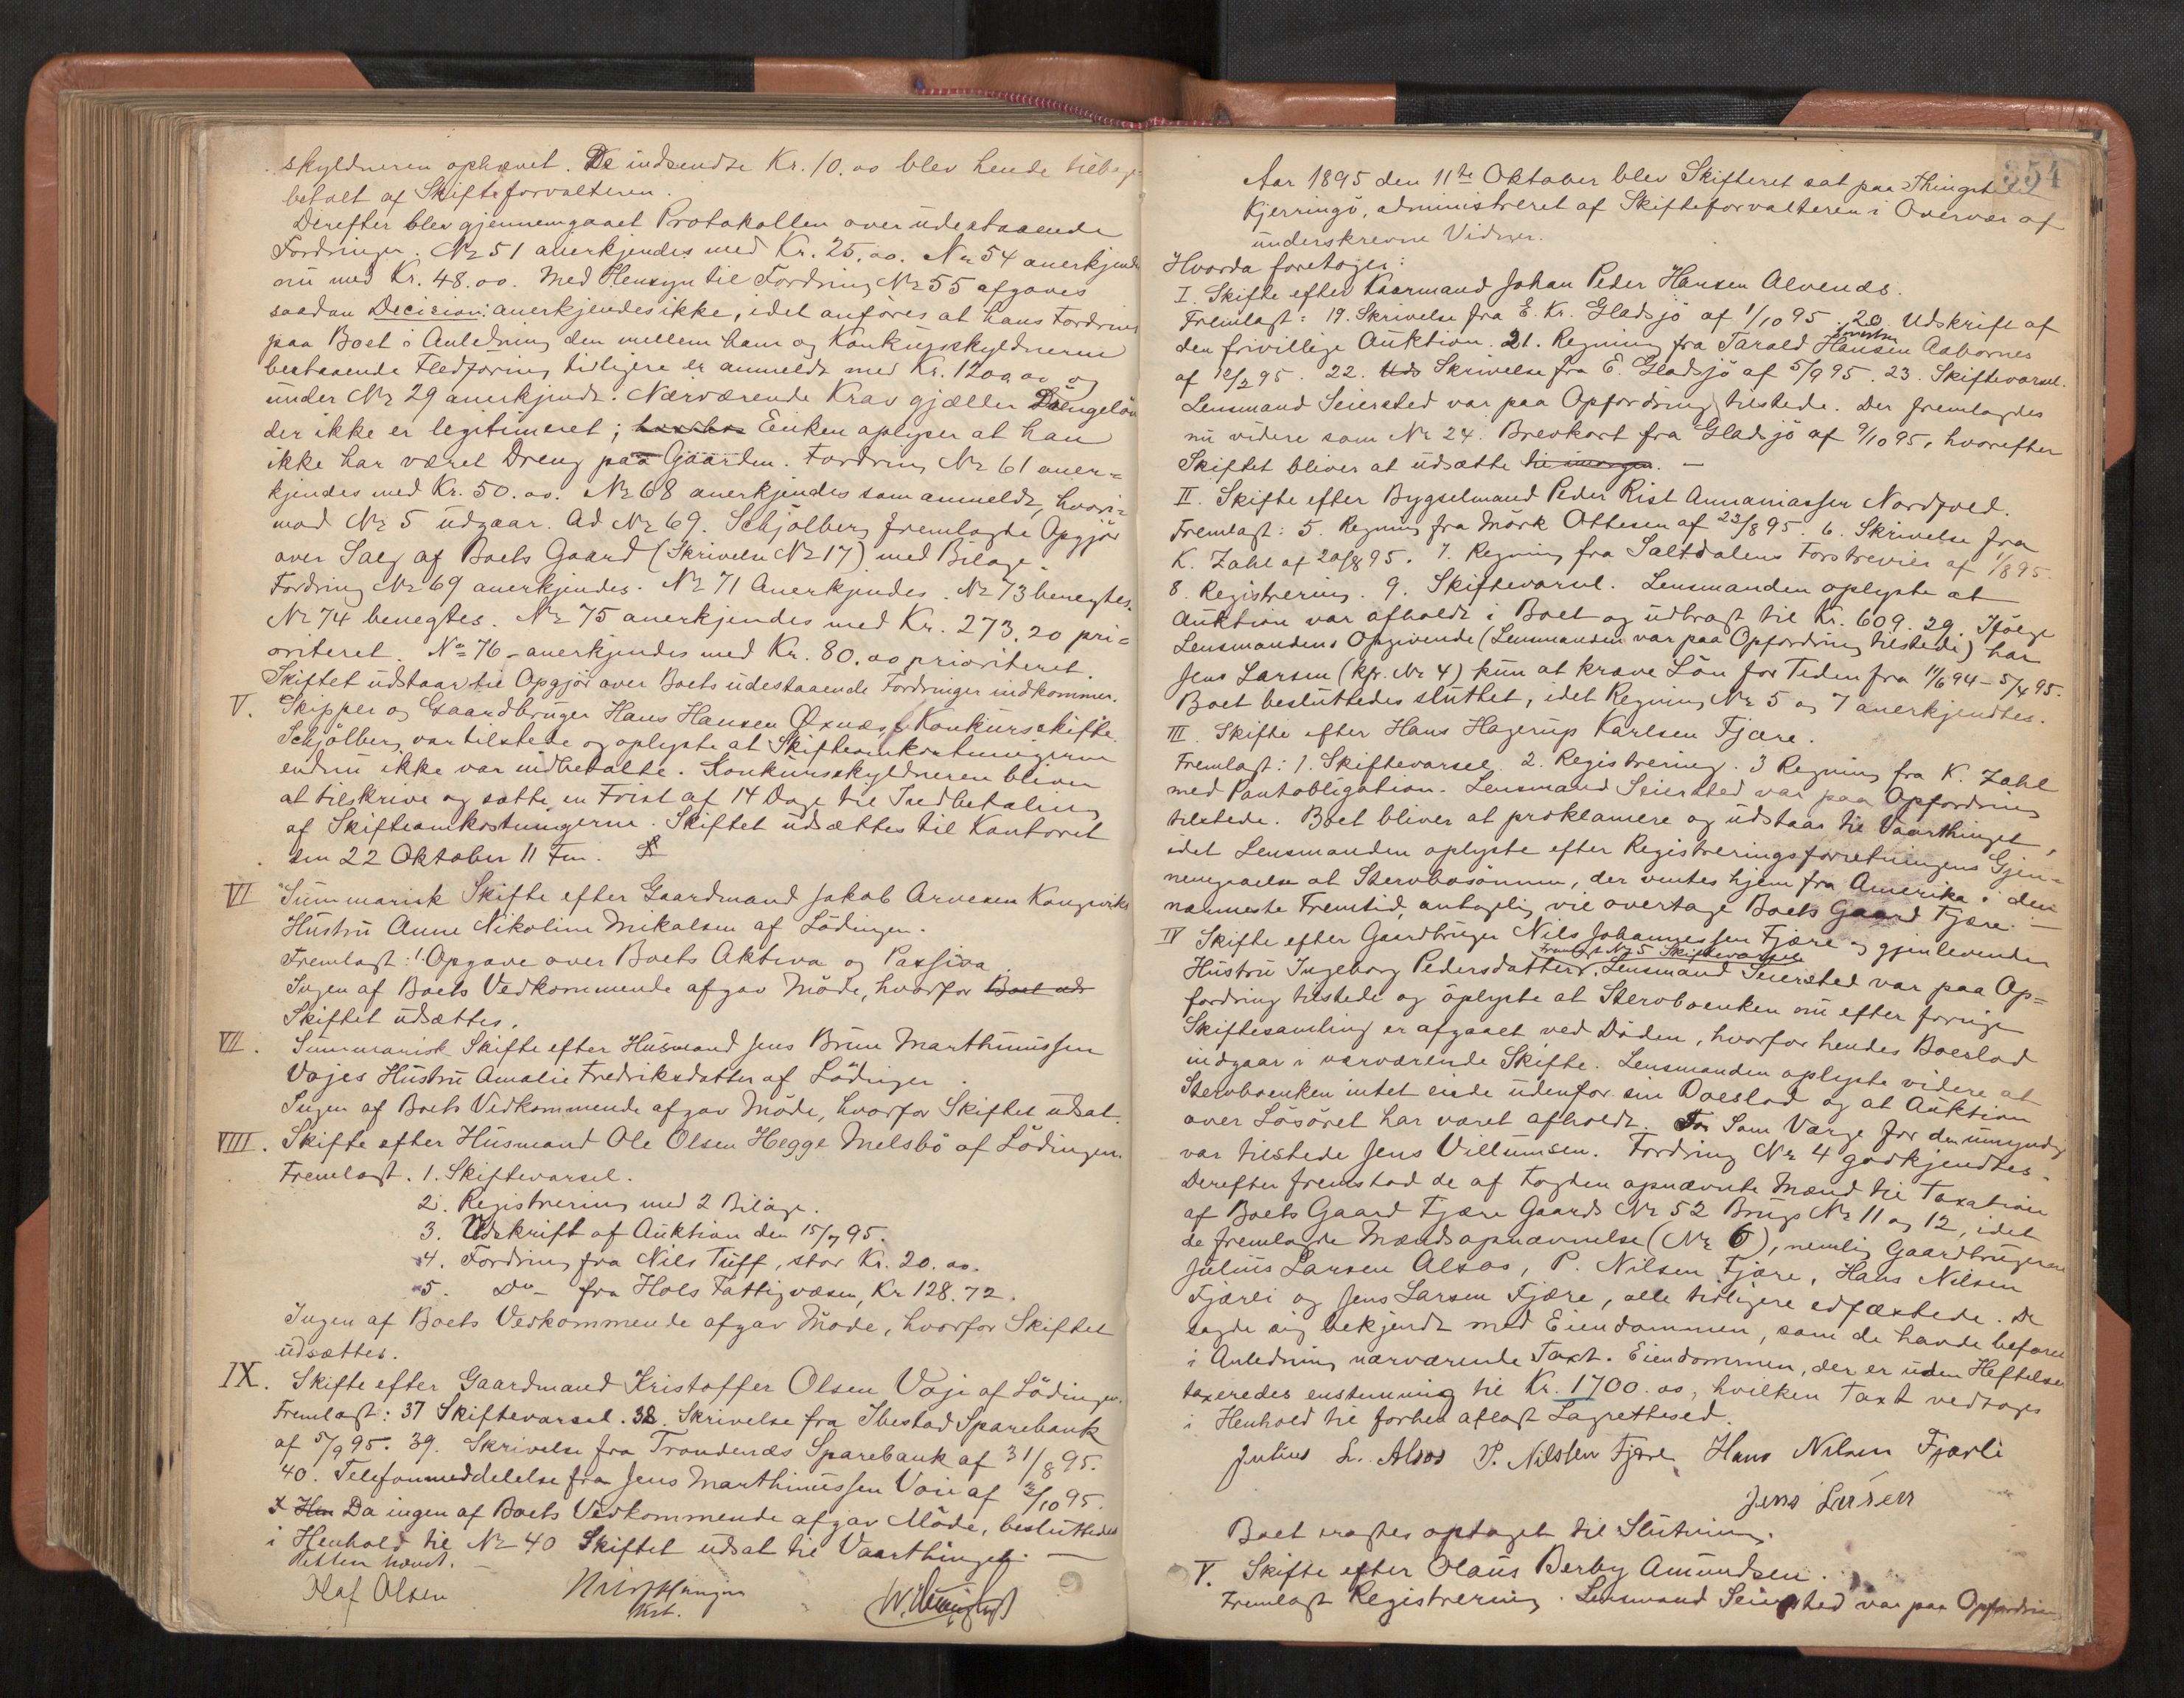 skyldneren ophævet. De indsendte Kr. 10.00 blev hende tilbage
betalt af Skifteforvalteren.
Derefter blev gjennemgaaet Protokollen over udestaaende
Fordringer. № 51 anerkjendes med Kr. 25.00. № 54 anerkjendes
nu med Kr. 48.00. Med Hensyn til Fordring № 55 afgaves
saadan Decision: anerkjendes ikke, idet anføres at hans Fordring
paa Boet i Anledning den mellem ham og Konkursskyldneren
bestaaende Fledføring tidligere er anmeldt med Kr. 1200.00 og
under № 29 anerkjendt. Nærværende Krav gjælder Drengeløn
der ikke er legitimeret; Enken oplyser at han
ikke har været Dreng paa Gaarden. Fordring № 61 aner=
kjendes med Kr. 50.00. № 68 anerkjendes som anmeldt, hvori=
mod № 5 udgaar. Ad № 69. Schjølberg fremlagde Opgjør
over Salg af Boets Gaard (Skrivelse № 17) med Bilage.
Fordring № 69 anerkjendes. № 71 Anerkjendes. № 73 benegtes.
№ 74 benegtes. № 75 anerkjendes med Kr. 273.20 pri=
oriteret. № 76 anerkjendes med Kr. 80.00 prioriteret.
Skiftet udstaar til Opgjør over Boets udestaaende Fordringer indkommer.
V. Skipper og Gaardbruger Hans Hansen Øxnæs Konkursskifte.
Schjølberg var tilstede og oplyste at Skifteomkostningerne
endnu ikke var indbetalte. Konkursskyldneren bliver
at tilskrive og sætte en Frist af 14 Dage til Indbetaling
af Skifteomkostningerne. Skiftet udsættes til Kontoret
den 22 Oktober 11 Fm.
VI Summarisk Skifte efter Gaardmand Jakob Arvesen Kongsviks
Hustru Anne Nikoline Mikalsen af Lödingen.
Fremlagt: 1. Opgave over Boets Aktiva og Passiva.
Ingen af Boets Vedkommende afgav Møde, hvorfor Boet uds
Skiftet udsættes.
VII. Summarisk Skifte efter Husmand Jens Brun Marthinussen
Vojes Hustru Amalie Fredriksdatter af Lödingen.
Ingen af Boets Vedkommende afgav Møde, hvorfor Skiftet udsat.
VIII. Skifte efter Husmand Ole Olsen Hegge Melsbö af Lödingen.
Fremlagt. 1. Skiftevarsel.
2. Registrering med 2 Bilage.
3. Udskrift af Auktion den 15/7 95.
4. Fordring fra Nils Tuff, stor Kr. 20.00.
5. Do - fra Hols Fattigvæsen, Kr 128.72.
Ingen af Boets Vedkommende afgav Møde, hvorfor Skiftet
udsættes.
IX. Skifte efter Gaardmand Kristoffer Olsen Voje af Lödingen.
Fremlagt: 37 Skiftevarsel. 38. Skrivelse fra Ibestad Sparebank
af 5/9 95. 39. Skrivelse fra Trondenæs Sparebank af 31/8 95.
40. Telefonmeddelelse fra Jens Marthinussen Voie af 2/10 95.
Da ingen af Boets Vedkommende afgav Møde, besluttedes
i Henhold til № 40 Skiftet udsat til Vaarthinget. —
Retten hævet.
Olaf Olsen
354
Aar 1895 den 11te Oktober blev Skifteret sat paa Thingstedet
Kjerringö, administreret af Skifteforvalteren i Overvær af
underskrevne Vidner.
Hvorda foretoges:
I. Skifte efter Kaarmand Johan Peder Hansen Alvenes.
Fremlagt: 19. Skrivelse fra E. Kr. Gladsjö af 1/10 95. 20. Udskrift af
den frivillige Auktion. 21. Regning fra Tarald Hansen Aabornes
af 12/2 95. 22. Uds Skrivelse fra E. Gladsjö af 5/9 95. 23. Skiftevarsel.
Lensmand Seiersted var paa Opfordring tilstede. Der fremlagdes
nu videre som № 24. Brevkort fra Gladsjö af 9/10 95, hvorefter
Skiftet bliver at udsætte til imorgen. —
II. Skifte efter Bygselmand Peder Rist Annaniassen Nordfold.
Fremlagt: 5. Regning fra Mörk Ottesen af 23/8 95. 6. Skrivelse fra
K. Zahl af 20/8 95. 7. Regning fra Saltdalens Forstrevier af 1/8 95.
8. Registrering. 9. Skiftevarsel. Lensmanden oplyste at
Auktion var afholdt i Boet og udbragt til Kr. 609.29. Ifølge
Lensmandens Opgivende (Lensmanden var paa Opfordring tilstede) har
Jens Larsen (kfr. № 4) kun at kræve Løn for Tiden fra 11/6 94 - 5/4 95.
Boet besluttedes sluttet, idet Regning № 5 og 7 anerkjendtes.
III. Skifte efter Hans Hagerup Karlsen Fjære.
Fremlagt: 1. Skiftevarsel. 2. Registrering. 3 Regning fra K. Zahl
med Pantobligation. Lensmand Seiersted var paa Opfordring
tilstede. Boet bliver at proklamere og udstaar til Vaarthinget,
idet Lensmanden oplyste efter Registreringsforretningens Gjen=
nemgaaelse at Stervbosønnen, der ventes hjem fra Amerika i den
nærmeste Fremtid, antagelig vil overtage Boets Gaard Fjære. —
IV Skifte efter Gaardbruger Nils Johannessen Fjære og gjenlevende
Fremlagt № 5 Skiftevarsel
Hustru Ingeborg Pedersdatter. Lensmand Seiersted var paa Op=
fordring tilstede og oplyste at Stervboenken nu efter forrige
Skiftesamling er afgaaet ved Døden, hvorfor hendes Boeslod
indgaar i nærværende Skifte. Lensmanden oplyste videre at
Stervboenken intet eiede udenfor sin Boeslod og at Auktion
over Løsøret har været afholdt. Som Værge for den umyndige
var tilstede Jens Villumsen. Fordring № 4 godkjendtes.
Derefter fremstod de af Fogden opnævnte Mænd til Taxation
af Boets Gaard Fjære Gaards № 52 Brugs № 11 og 12, idet
de fremlagde Mændsopnævnelse (№ 6), nemlig Gaardbrugerne
Julius Larsen Alsos, P. Nilsen Fjære, Hans Nilsen
Fjærli og Jens Larsen Fjære, alle tidligere edfæstede. De
sagde sig bekjendt med Eiendommen, som de havde befaret
i Anledning nærværende Taxt. Eiendommen, der er uden Heftelser
taxeredes enstemmig til Kr. 1700.00, hvilken Taxt vedtoges
i Henhold til forhen aflagt Lagrettesed.
Julius L. Alsos P. Nilssen Fjære Hans Nilsen Fjærli
Jens Larsen
Boet ansaaes optaget til Slutning.
V. Skifte efter Olaus Berby Amundsen.
Fremlagt Registrering. Lensmand Seiersted var paa Opfordring